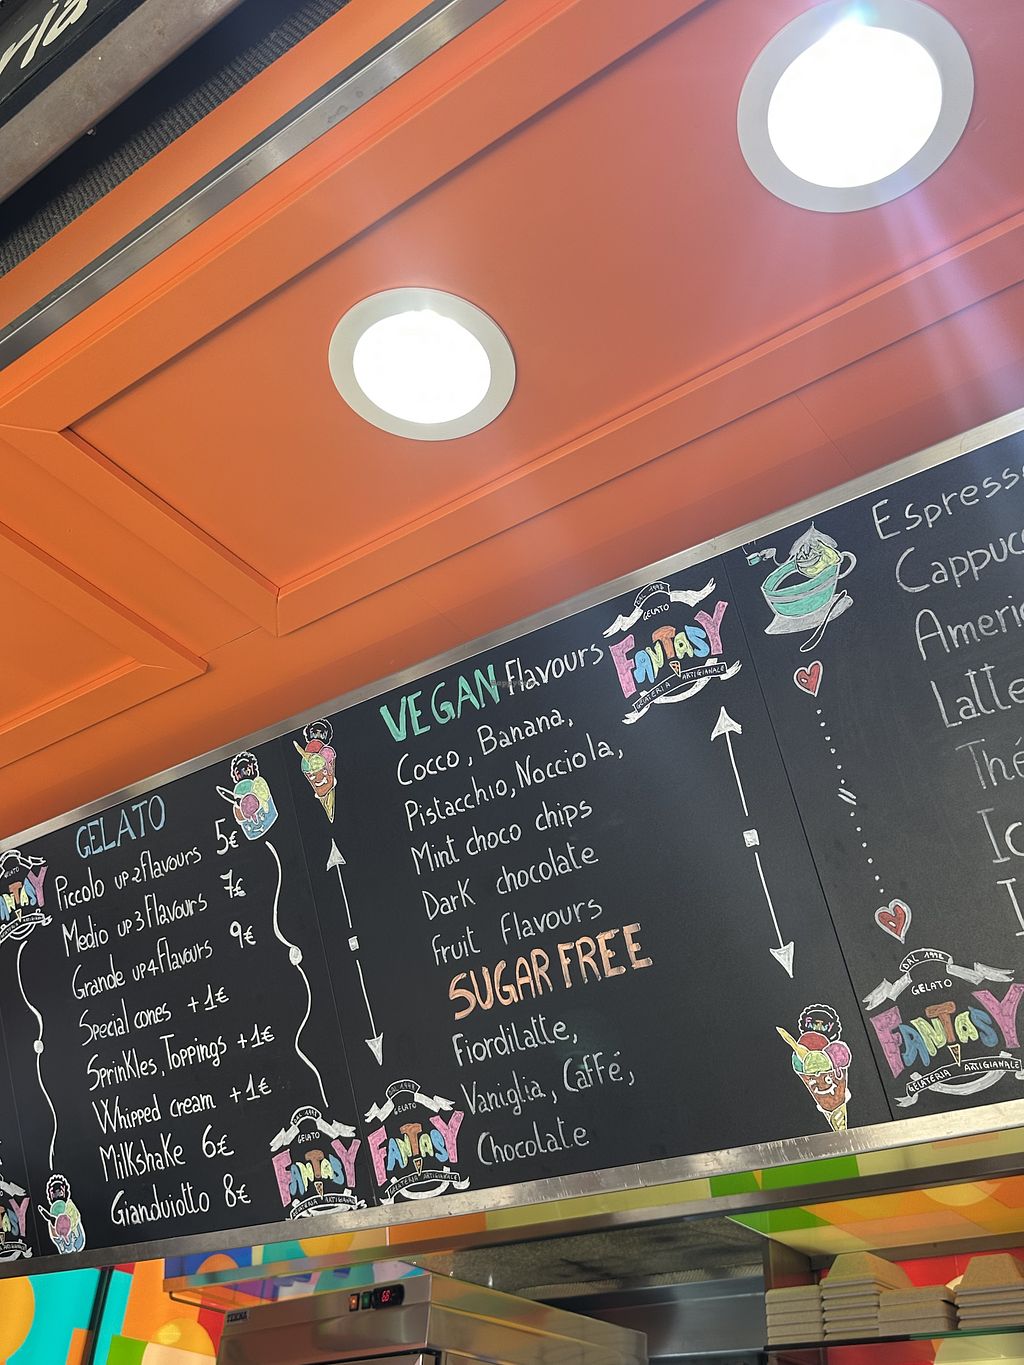 ria
GELATO
Piccolo UP 2 flavours 5€
Medio UP 3 Flavours 7€
Grande UP 4 Flavours 9€
Special cones +1€
Sprinkles, Toppings +1€
Whipped cream +1€
Milkshake 6€
Gianduiotto 8€
VEGAN Flavours
Cocco, Banana,
Pistacchio, Nocciola,
Mint choco chips
Dark chocolate
Fruit Flavours
SUGAR FREE
Fiordilatte,
Vaniglia, Caffé,
Chocolate
DAL 1998
GELATO
FANTASY
GELATERIA ARTIGIANALE
DAL 1998
GELATO
FANTASY
GELATERIA ARTIGIANALE
DAL 1998
GELATO
FANTASY
GELATERIA ARTIGIANALE
Espresso
Cappucc
Americ
Latte
Thé
Ic
I
DAL 1998
GELATO
FANTASY
GELATERIA ARTIGIANALE